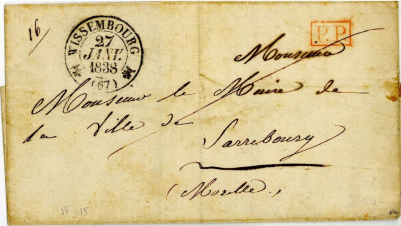 16
WISSEMBOURG
27
JANV.
1838
(67)
P.P.
Monsieur
Monsieur le Maire de
la Ville de
Sarrebourg
(Moselle.)
W. 15